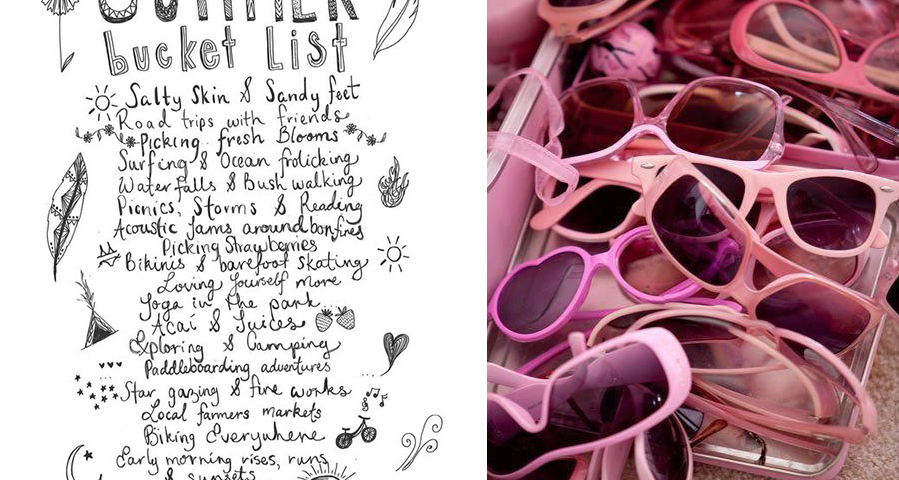 SUMMER
bucket List
Salty Skin & Sandy feet
Road trips with friends
Picking fresh Blooms
Surfing & Ocean frolicking
Waterfalls & Bush walking
Picnics, Storms & Reading
Acoustic Jams around bonfires
Picking Strawberries
Bikinis & barefoot skating
Loving yourself more
Yoga in the park
Acaí & Juices
Exploring & Camping
Paddleboarding adventures
Star gazing & fire works
Local farmers markets
Biking Everywhere
Early morning rises, runs
& sunsets